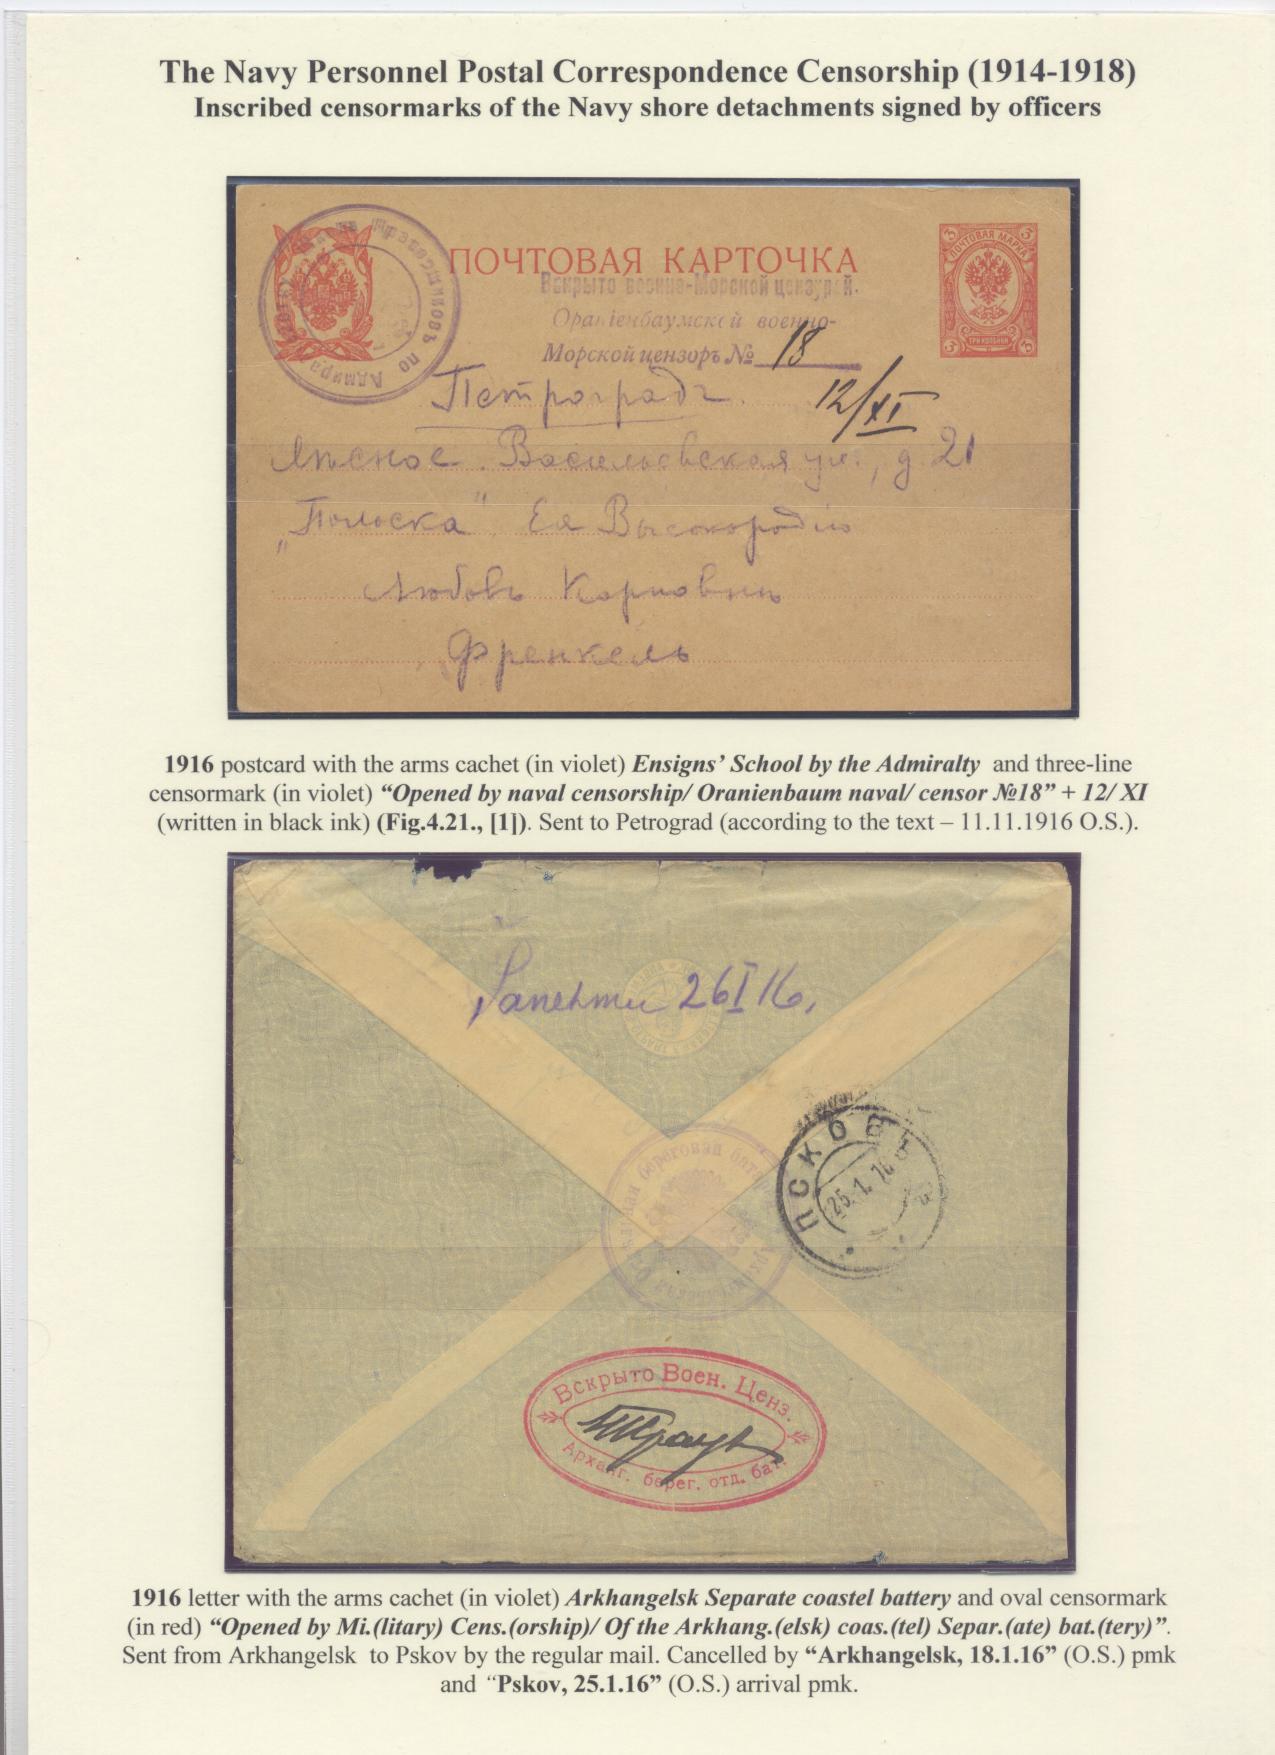 The Navy Personnel Postal Correspondence Censorship (1914-1918)
Inscribed censormarks of the Navy shore detachments signed by officers
ПОЧТОВАЯ КАРТОЧКА
3 3
ПОЧТОВАЯ МАРКА
3 ТРИ КОПѢЙКИ 3
Прапорщиковъ по Адмира
Вскрыто военно-Морской цензурой.
Ораніенбаумской военно-
Морской цензоръ № 18
12/XI
Петроградъ.
Лѣсное. Васильевская ул., д. 21
„Полоска" Ея Высокородію
Любовь Карповнѣ
Френкель
1916 postcard with the arms cachet (in violet) Ensigns’ School by the Admiralty and three-line
censormark (in violet) “Opened by naval censorship/ Oranienbaum naval/ censor №18” + 12/ XI
(written in black ink) (Fig.4.21., [1]). Sent to Petrograd (according to the text – 11.11.1916 O.S.).
26 I 16.
береговая бат
ПСКОВЪ
25.1.16
Вскрыто Воен. Ценз.
Арханг. берег. отд. бат.
1916 letter with the arms cachet (in violet) Arkhangelsk Separate coastel battery and oval censormark
(in red) “Opened by Mi.(litary) Cens.(orship)/ Of the Arkhang.(elsk) coas.(tel) Separ.(ate) bat.(tery)”.
Sent from Arkhangelsk to Pskov by the regular mail. Cancelled by “Arkhangelsk, 18.1.16” (O.S.) pmk
and “Pskov, 25.1.16” (O.S.) arrival pmk.